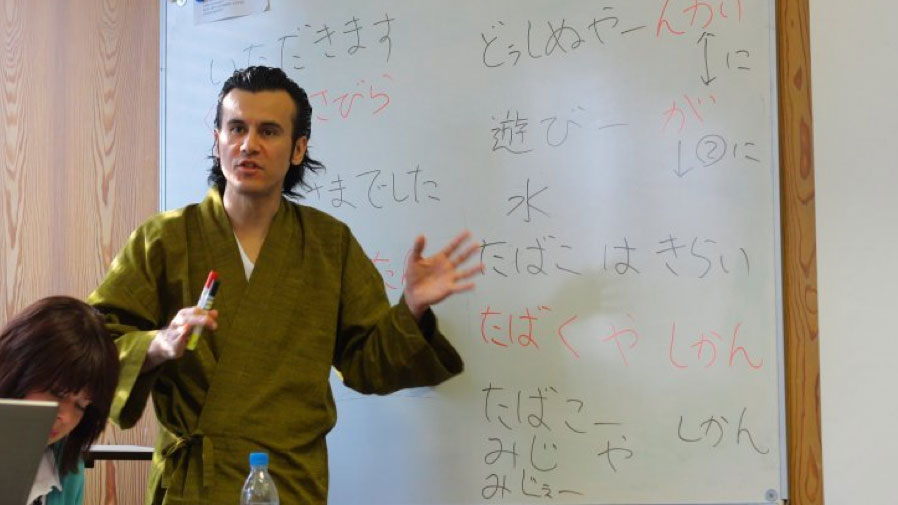 いただきます
さびら
さまでした
どぅしぬやー んかい
に
遊びー が
②に
水
たばこ は きらい
たばく や しかん
たばこー しかん
みじ や
みじぇー